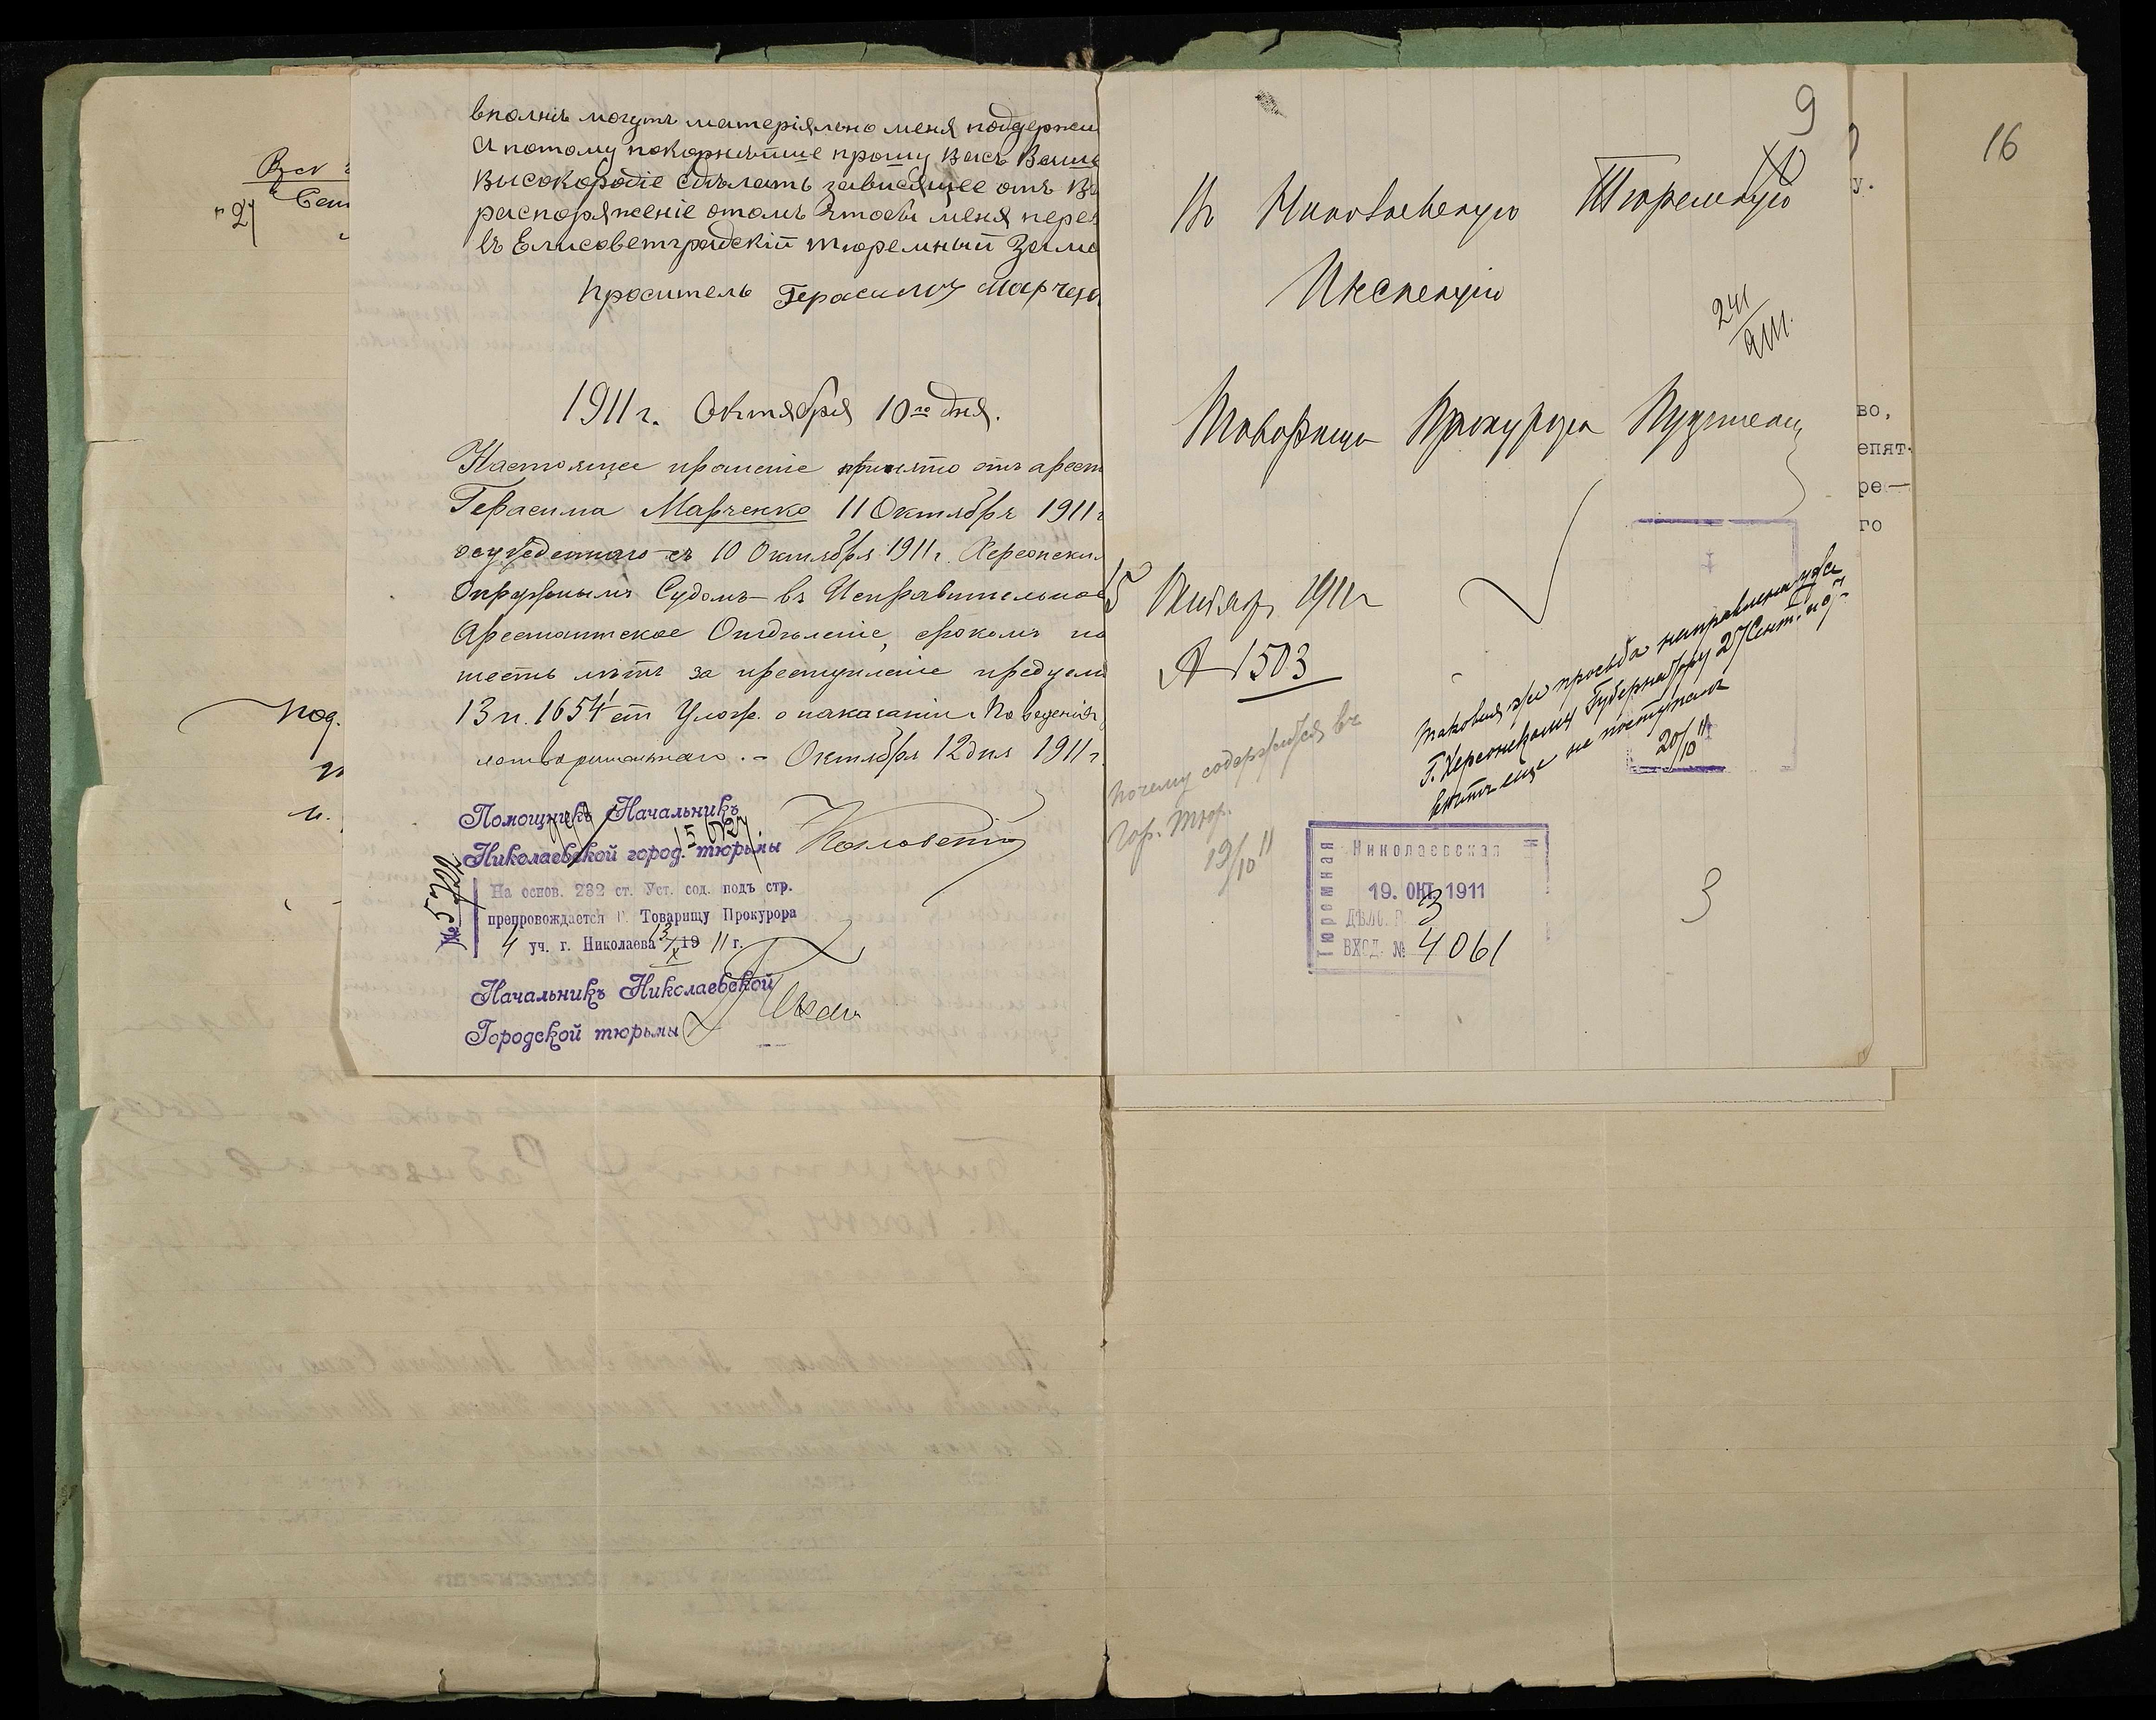 вполнѣ могутъ матеріяльно меня поддержи
А потому покорнѣйше прошу Васъ Ваше
Высокородіе сдѣлать зависящее отъ Ва
распоряженіе отомъ Чтобы меня перев
въ Елисоветградскій тюремный Замо
Проситель Герасимъ Марченко
1911 г. Октября 10го дня.
Настоящее прошеніе принято отъ арест
Герасима Марченко 11 Октября 1911 г
осужденнаго съ 10 Октября 1911 г. Херсонским
Окружнымъ Судомъ въ Исправительное
Арестантское Отдѣленіе, срокомъ на
шесть лѣтъ за преступленіе предусм
13 и 1654¹ ст Улож. о наказаніи. Поведенія
Октября 12 дня 1911 г
Помощникъ Начальникъ
Николаевской город. тюрьмы
№ 5722
На основ. 282 ст. Уст. сод. подъ стр.
препровождается Г. Товарищу Прокурора
4 уч. г. Николаева 13/X 19 11 г.
Начальникъ Николаевской
Городской тюрьмы
9
Въ Николаевскую Тюремную
Инспекцію
241
Товарищ Прокурора
15 Октябр 1911 г
№ 1503
Почему содержится въ
Гор. Тюр.
19/10 11
Таковая же просьба направлена уже
Г. Херсонскому Губернатору 27 Сент. но
отвѣтъ еще не поступалъ
20/10 11
Николаевская
Тюремная
И
19. ОКТ. 1911
ДѢЛО. 3
ВХОД. № 4061
3
16
у.
во,
епят-
ре—
го
Сен
"27
под.